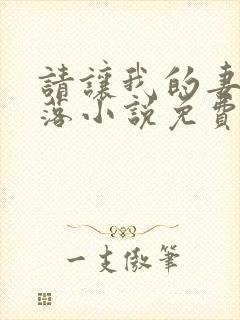 請讓我的妻
落小說免費
一支傲筆